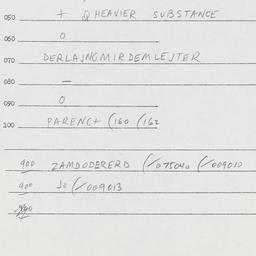 050 + Q HEAVIER SUBSTANCE
060 0
070 DERLAJNGMIRDEMLEJTER
080 —
090 0
100 PARENC+ (160 (162
900 ZAMDODERERD (/075040 (/009010
900 Jo (/009013